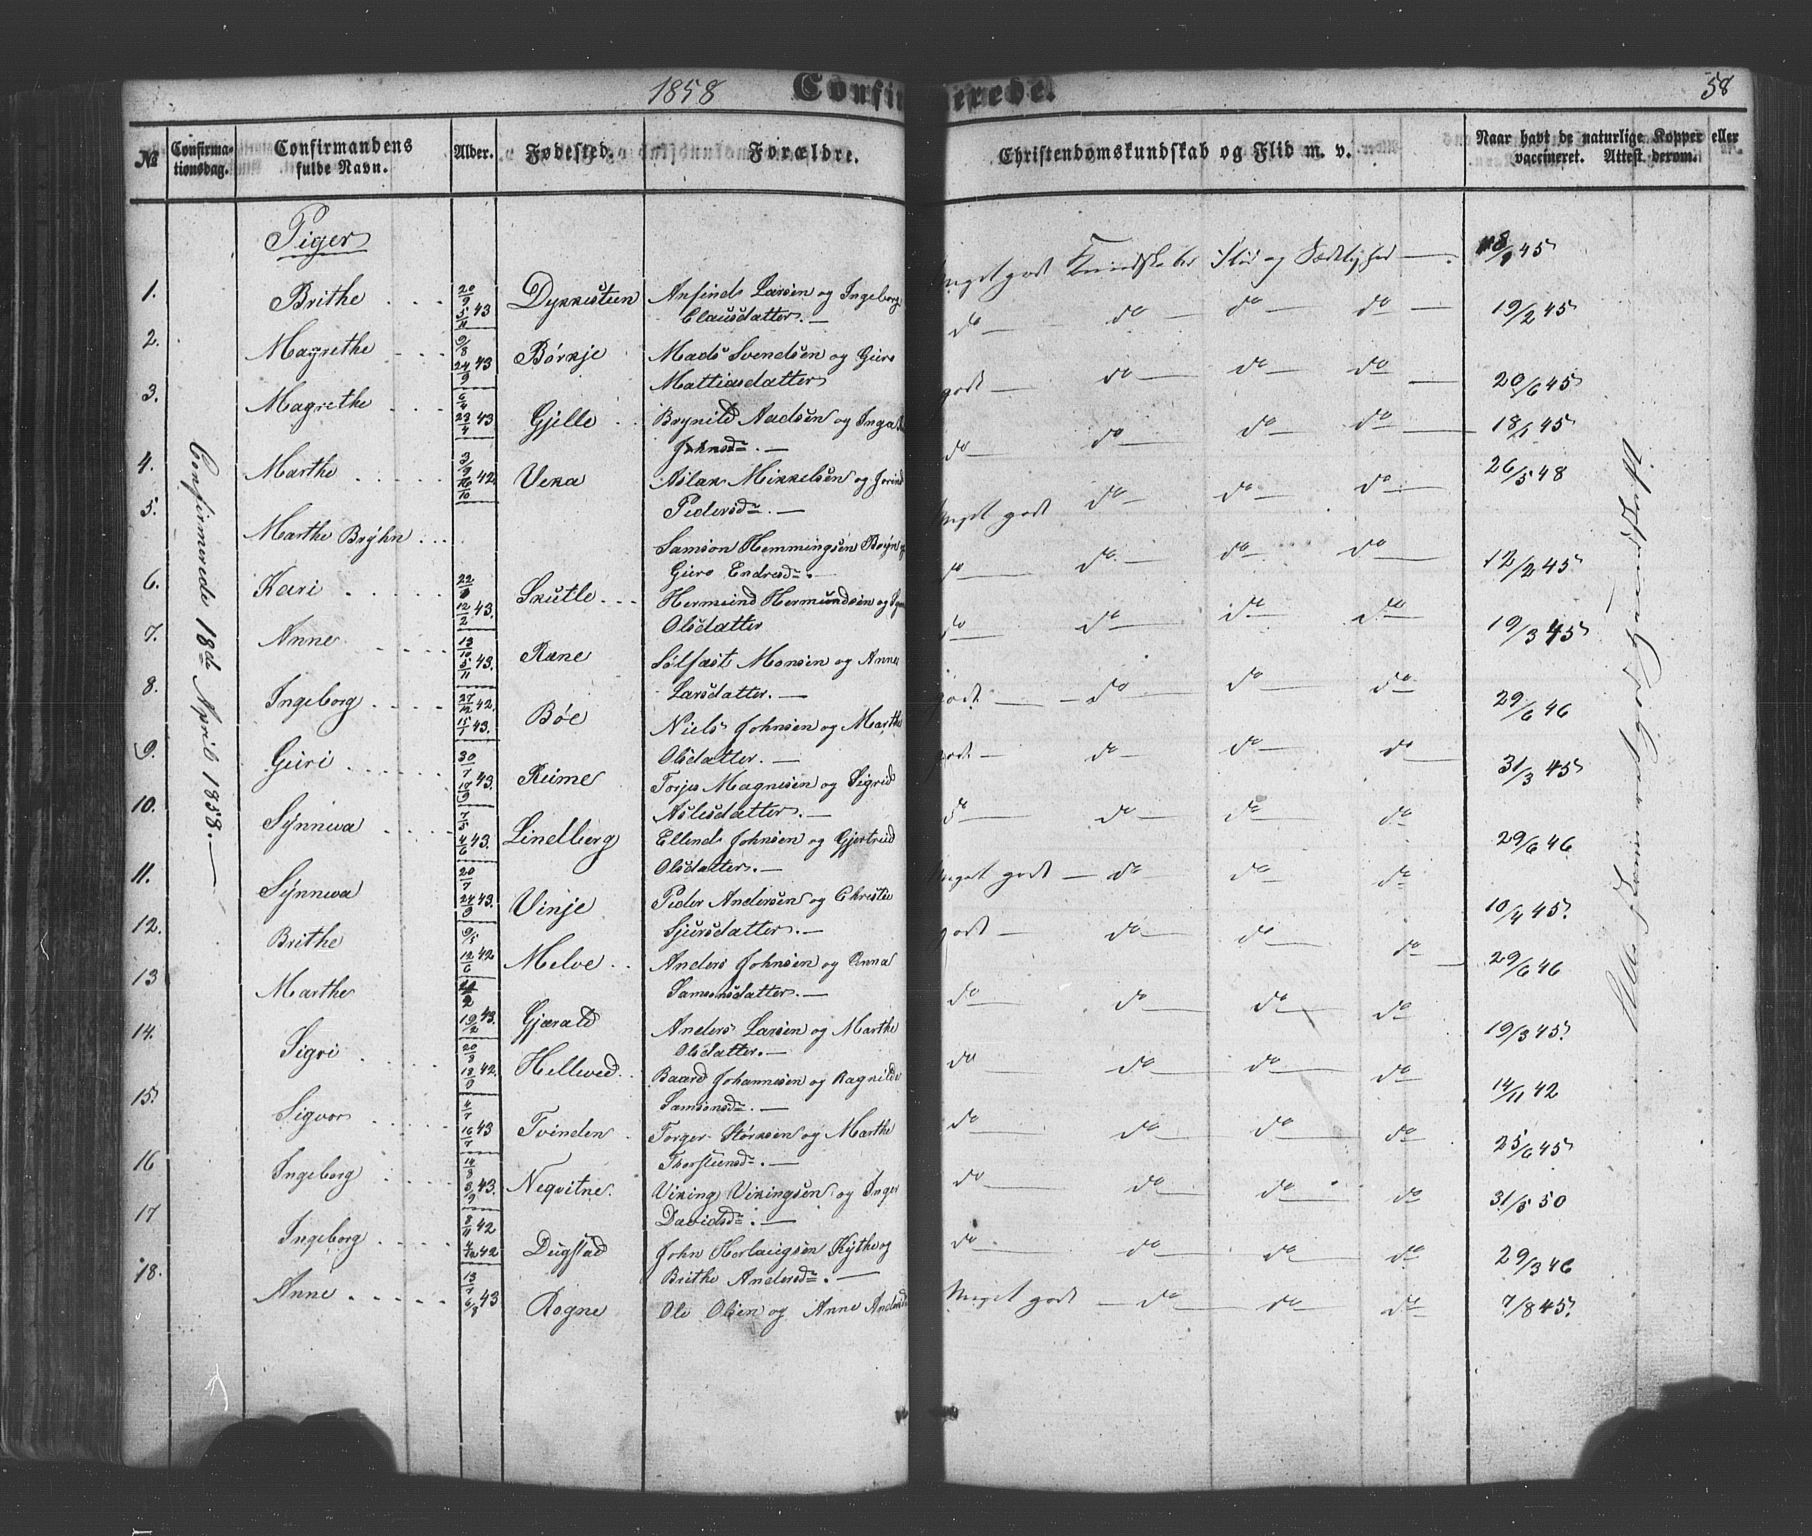 1858 Confirmerede. 58
№ Confirma-tionsdag. Confirmandens fulde Navn. Alder. Fødested. Forældre. Christendomskundskab og Flid m. v. Naar havt de naturlige Kopper eller vaccineret. Attest derom.
Confirmerede 18de April 1858. —
Piger
1. Brithe 20/9 5/11 43 Dykkesteen Anfind Larsen og Ingeborg
Clausdatter. — meget godt Kundskaber Flid og Sædelighed — 18/9 45
2. Magrethe 9/8 24/9 43 Børkje Mads Svendsen og Guro
Mattiasdatter do do do do 19/2 45
3. Magrethe 6/4 23/4 43 Gjelle Brynild Aadsen og Inga
Johnsdr. — godt — do do do 20/6 45
4. Marthe 3/9 16/10 42 Veka Aslak Mikkelsen og
Pedersdr. — do do do do 18/1 45
5. Marthe Brÿhn Samson Hemmingsen Brÿn og
Guro Endresdr. — Meget godt do do do 26/5 48
6. Kari 22/1 12/2 43. Skutle Hermund Hermundsen og
Olsdatter do do do do 12/2 45
7. Anne 13/10 5/11 43. Rene Sølfast Monsen og Anne
Larsdatter. — do do do do 19/3 45
8. Ingeborg 27/12 42. 15/1 43. Bøe Niels Johnsen og Marthe
Olsdatter. — godt — do do do 29/6 46
9. Guri 30/7 17/9 43. Reime Torjes Magnesen og Sigrid
Aslesdatter. — godt — do do do 31/3 45
10. Sÿnneva 7/5 4/6 43. Lindberg Ellend Johnsen og Gjertrud
Olsdatter. — do do do do 29/6 46
11. Sÿnneva 20/7 24/9 43. Vinje Peder Andersen og Christie
Sjursdatter. — Meget godt — do do do 10/4 45.
12. Brithe 9/5 12/6 42 Melve Anders Johnsen og Anna
Samsonsdatter. — godt — do do do 29/6 46
13 Marthe 19/2 43. Gjerald Anders Larsen og Marthe
Olsdatter. — do do do do 19/3 45.
14. Sigri 20/8 18/9 42. Helleved Baard Johannesen og Ragnilde
Samsonsdr. — do do do do 14/11 42
15. Sigvor 4/7 16/7 43 Tvinden Torger Størksen og Marthe
Thorsteinsdr. — do do do do 25/6 45
16 Ingeborg 14/8 3/9 43. Neqvitne. Viking Vikingsen og Inger
Davidsdr. — do do do do 31/5 50
17 Ingeborg 8/11 42 4/12 42 Dugstad John Herlaugsen Kÿthe og
Brithe Andersdr. — do do do do 29/3 46
18. Anne 13/7 6/8 43 Rogne Ole Olsen og Anne Meget godt — do do do 7/8 45.